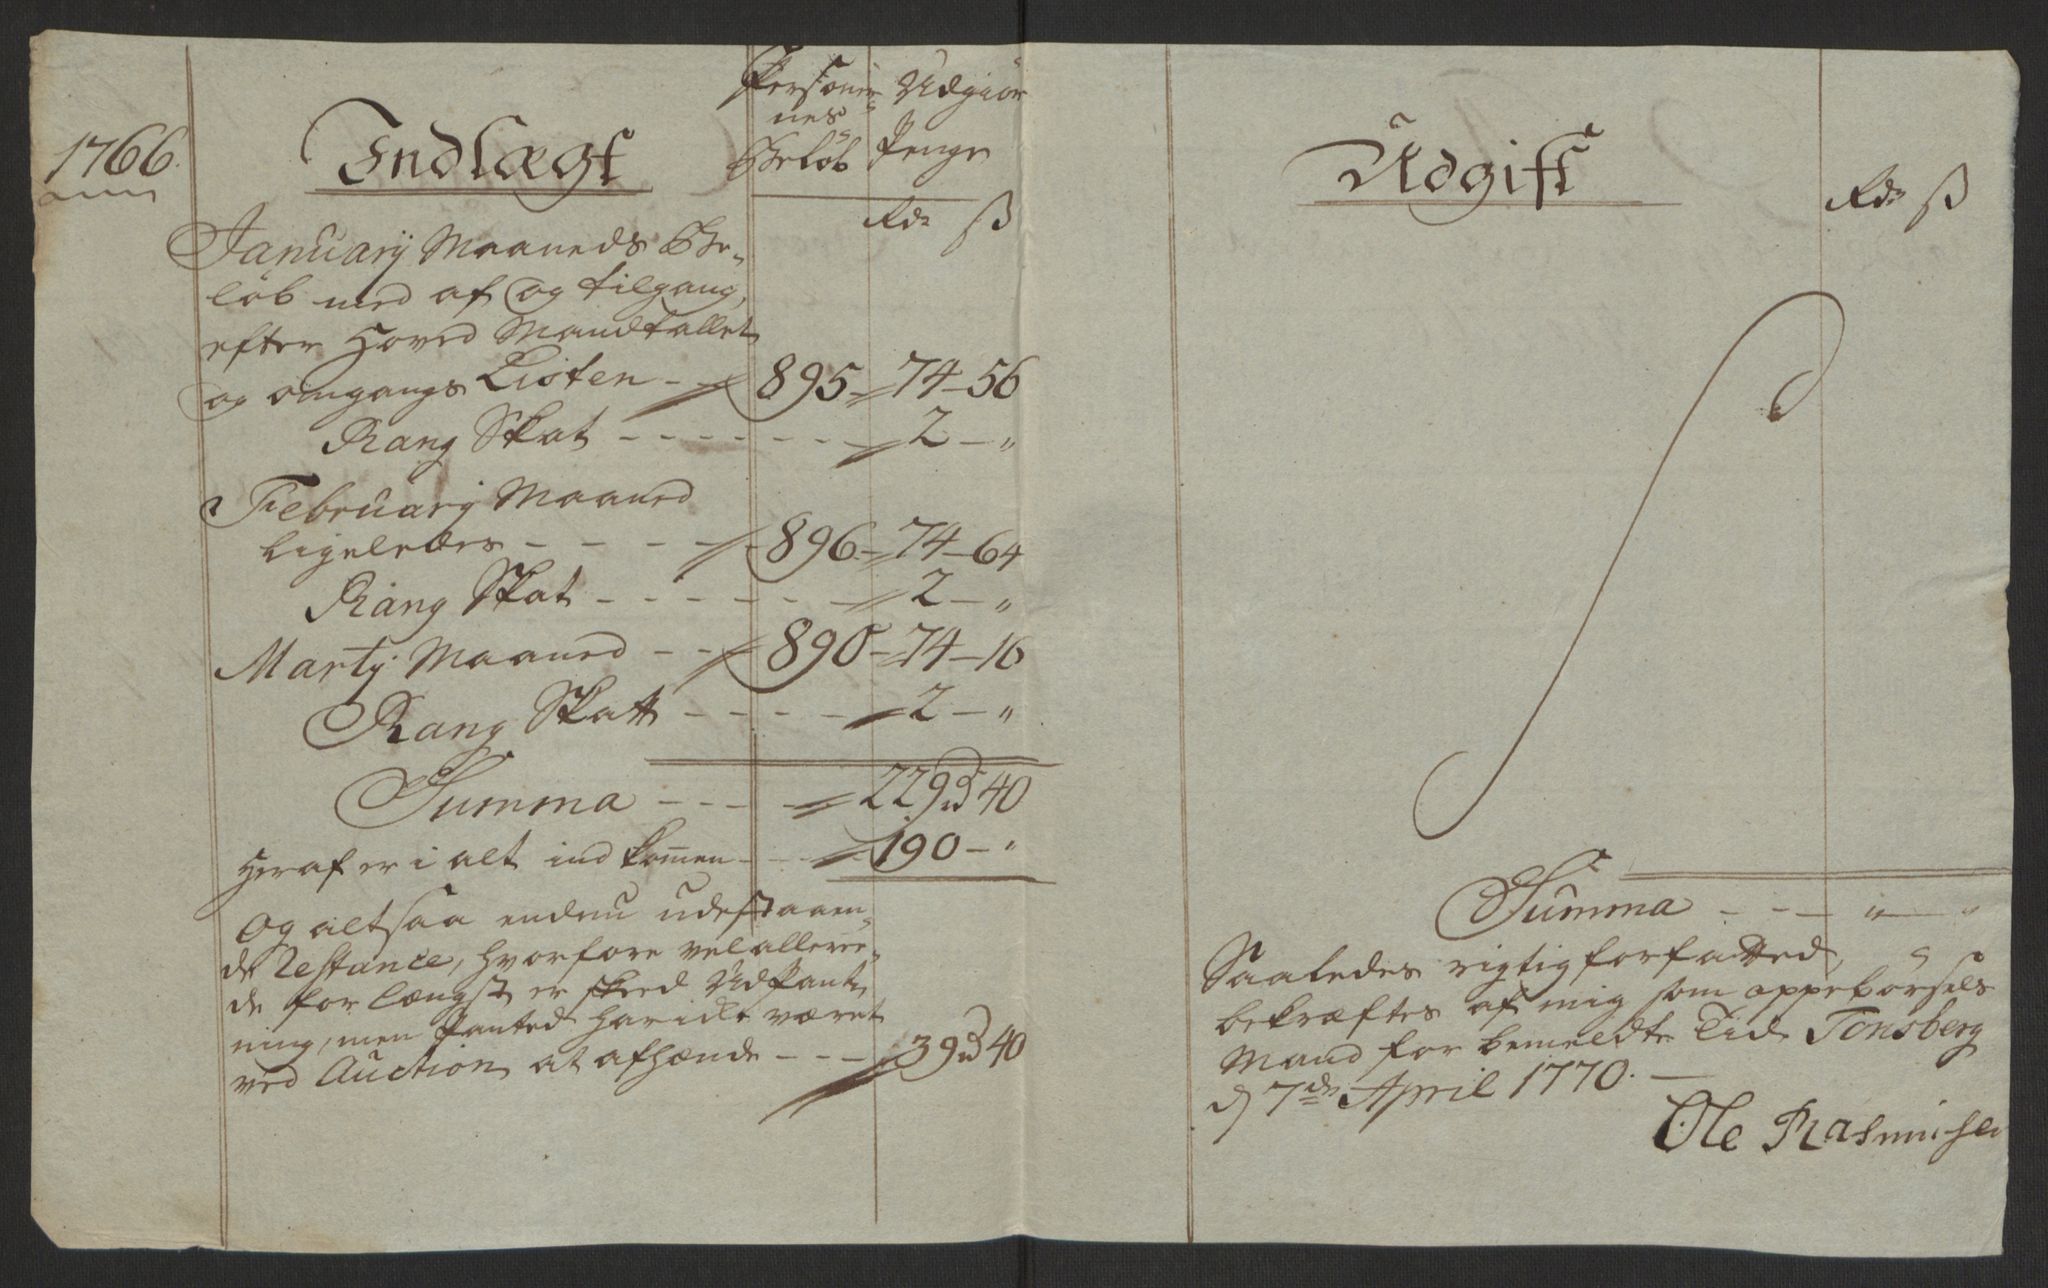 1766.
Indlægt
Personer-
nes
Beløb
Udgiør
Penge
Rdr ß
Januarij Maaneds Be-
løb med af og tilgang,
efter Hoved Mandtallet
og omgangs Listen - 895 - 74 - 56
Rang Skat - - - - - - 2 - "
Februarij Maaned
Ligeledes - - - - - 896 - 74 - 64
Rang Skat - - - - - - 2 - "
Martij Maaned - - 890 - 74 - 16
Rang Skatt - - - - 2 - "
Summa - - - - 229 rd 40
Heraf er i alt ind kommen - - - 190 - "
Og altsaa endnu udestaaen-
de Restance, hvorfore vel allere-
de for længst er skeed Udpant-
ning, men Panted har icke været
ved Auction at afhænde - - - 39 rd 40
Udgift
Rdr ß
Summa - - - " - "
Saaledes rigtig forfatted,
bekræftes af mig som oppebørsels
Mand for bemeldte Tid Tønsberg
d 7de April 1770. -
Ole Rasmusen